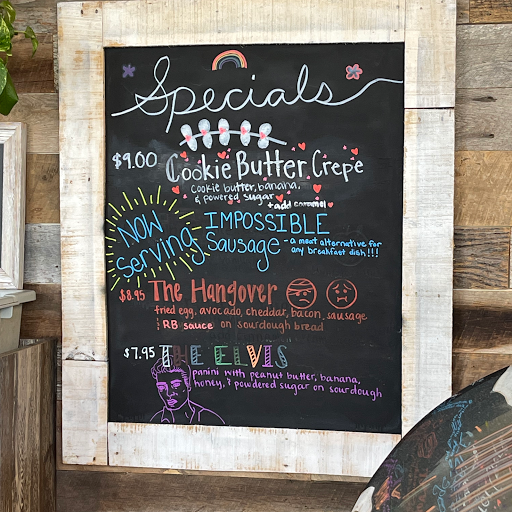 Specials
$9.00 Cookie Butter Crepe
cookie butter, banana,
& powdered sugar
+add caramel
NOW
Serving
IMPOSSIBLE
Sausage - a meat alternative for
any breakfast dish!!!
$8.95 The Hangover
fried egg, avocado, cheddar, bacon, sausage
& RB sauce on sourdough bread
$7.95 THE ELVIS
panini with peanut butter, banana,
honey, & powdered sugar on sourdough